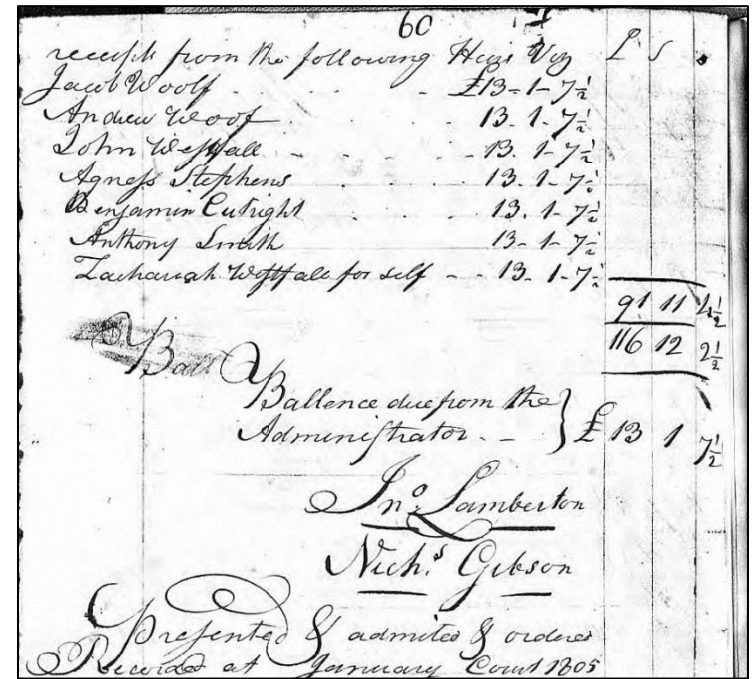 60
receipts from the following Heirs Viz £ S
Jacob Woolf . . . . £13-1-7½
Andrew Woof . . . 13-1-7½
John Westfall - - - - 13.1-7½
Agness Stephens . . . 13.1-7½
Benjamin Cutright . . 13.1-7½
Anthony Smith 13-1-7½
Zachariah Westfall for self - - 13.1-7½
91 11 4½
116 12 2½
Ball
Ballence due from the
Administrator - } £ 13 1 7½
Jno. Lamberton
Nichs Gibson
Presented & admited & ordered
Recorded at January Court 1805